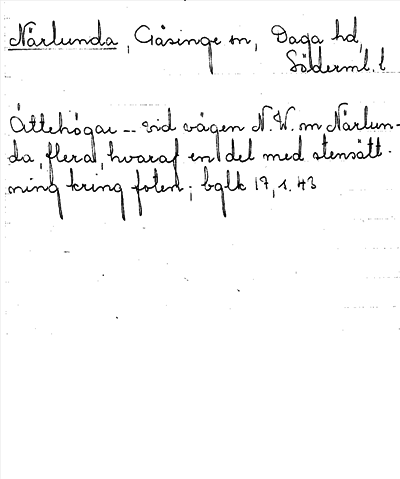 Närlunda, Gåsinge sn, Daga hd,
Söderml. l
Ättehögar -- vid vägen N.W. om Närlun-
da, flera, hvaraf en del med stensätt-
ning kring foten; bglk 17, 1.43